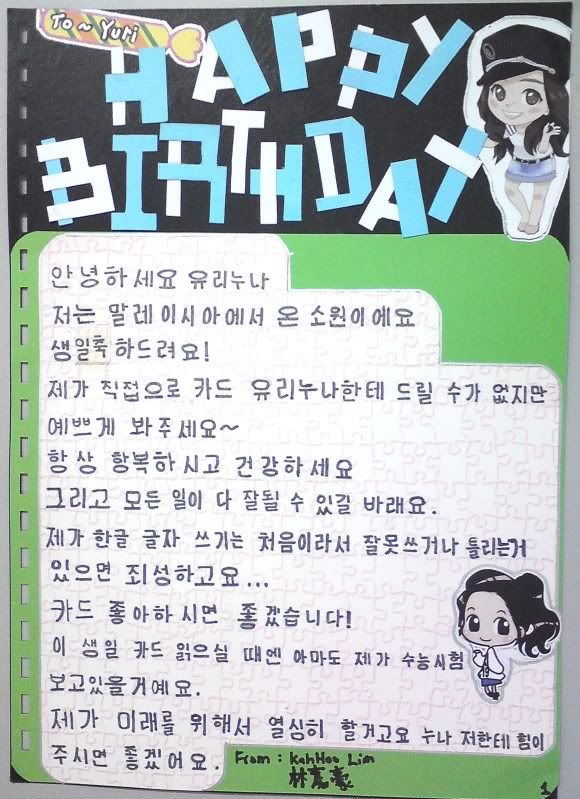 To~Yuri
HAPPY
BIRTHDAY
안녕하세요 유리누나
저는 말레이시아에서 온 소원이에요
생일축하드려요!
제가 직접으로 카드 유리누나한테 드릴 수가 없지만
예쁘게 봐주세요~
항상 항복하시고 건강하세요
그리고 모든 일이 다 잘될 수 있길 바래요.
제가 한글 글자 쓰기는 처음이라서 잘못쓰거나 틀리는거
있으면 죄성하고요...
카드 좋아하시면 좋겠습니다!
이 생일 카드 읽으실 때엔 아마도 제가 수능시험
보고있을거예요.
제가 미래를 위해서 열심히 할거고요 누나 저한테 힘이
주시면 좋겠어요.
From : KahHoo Lim
林嘉豪
1